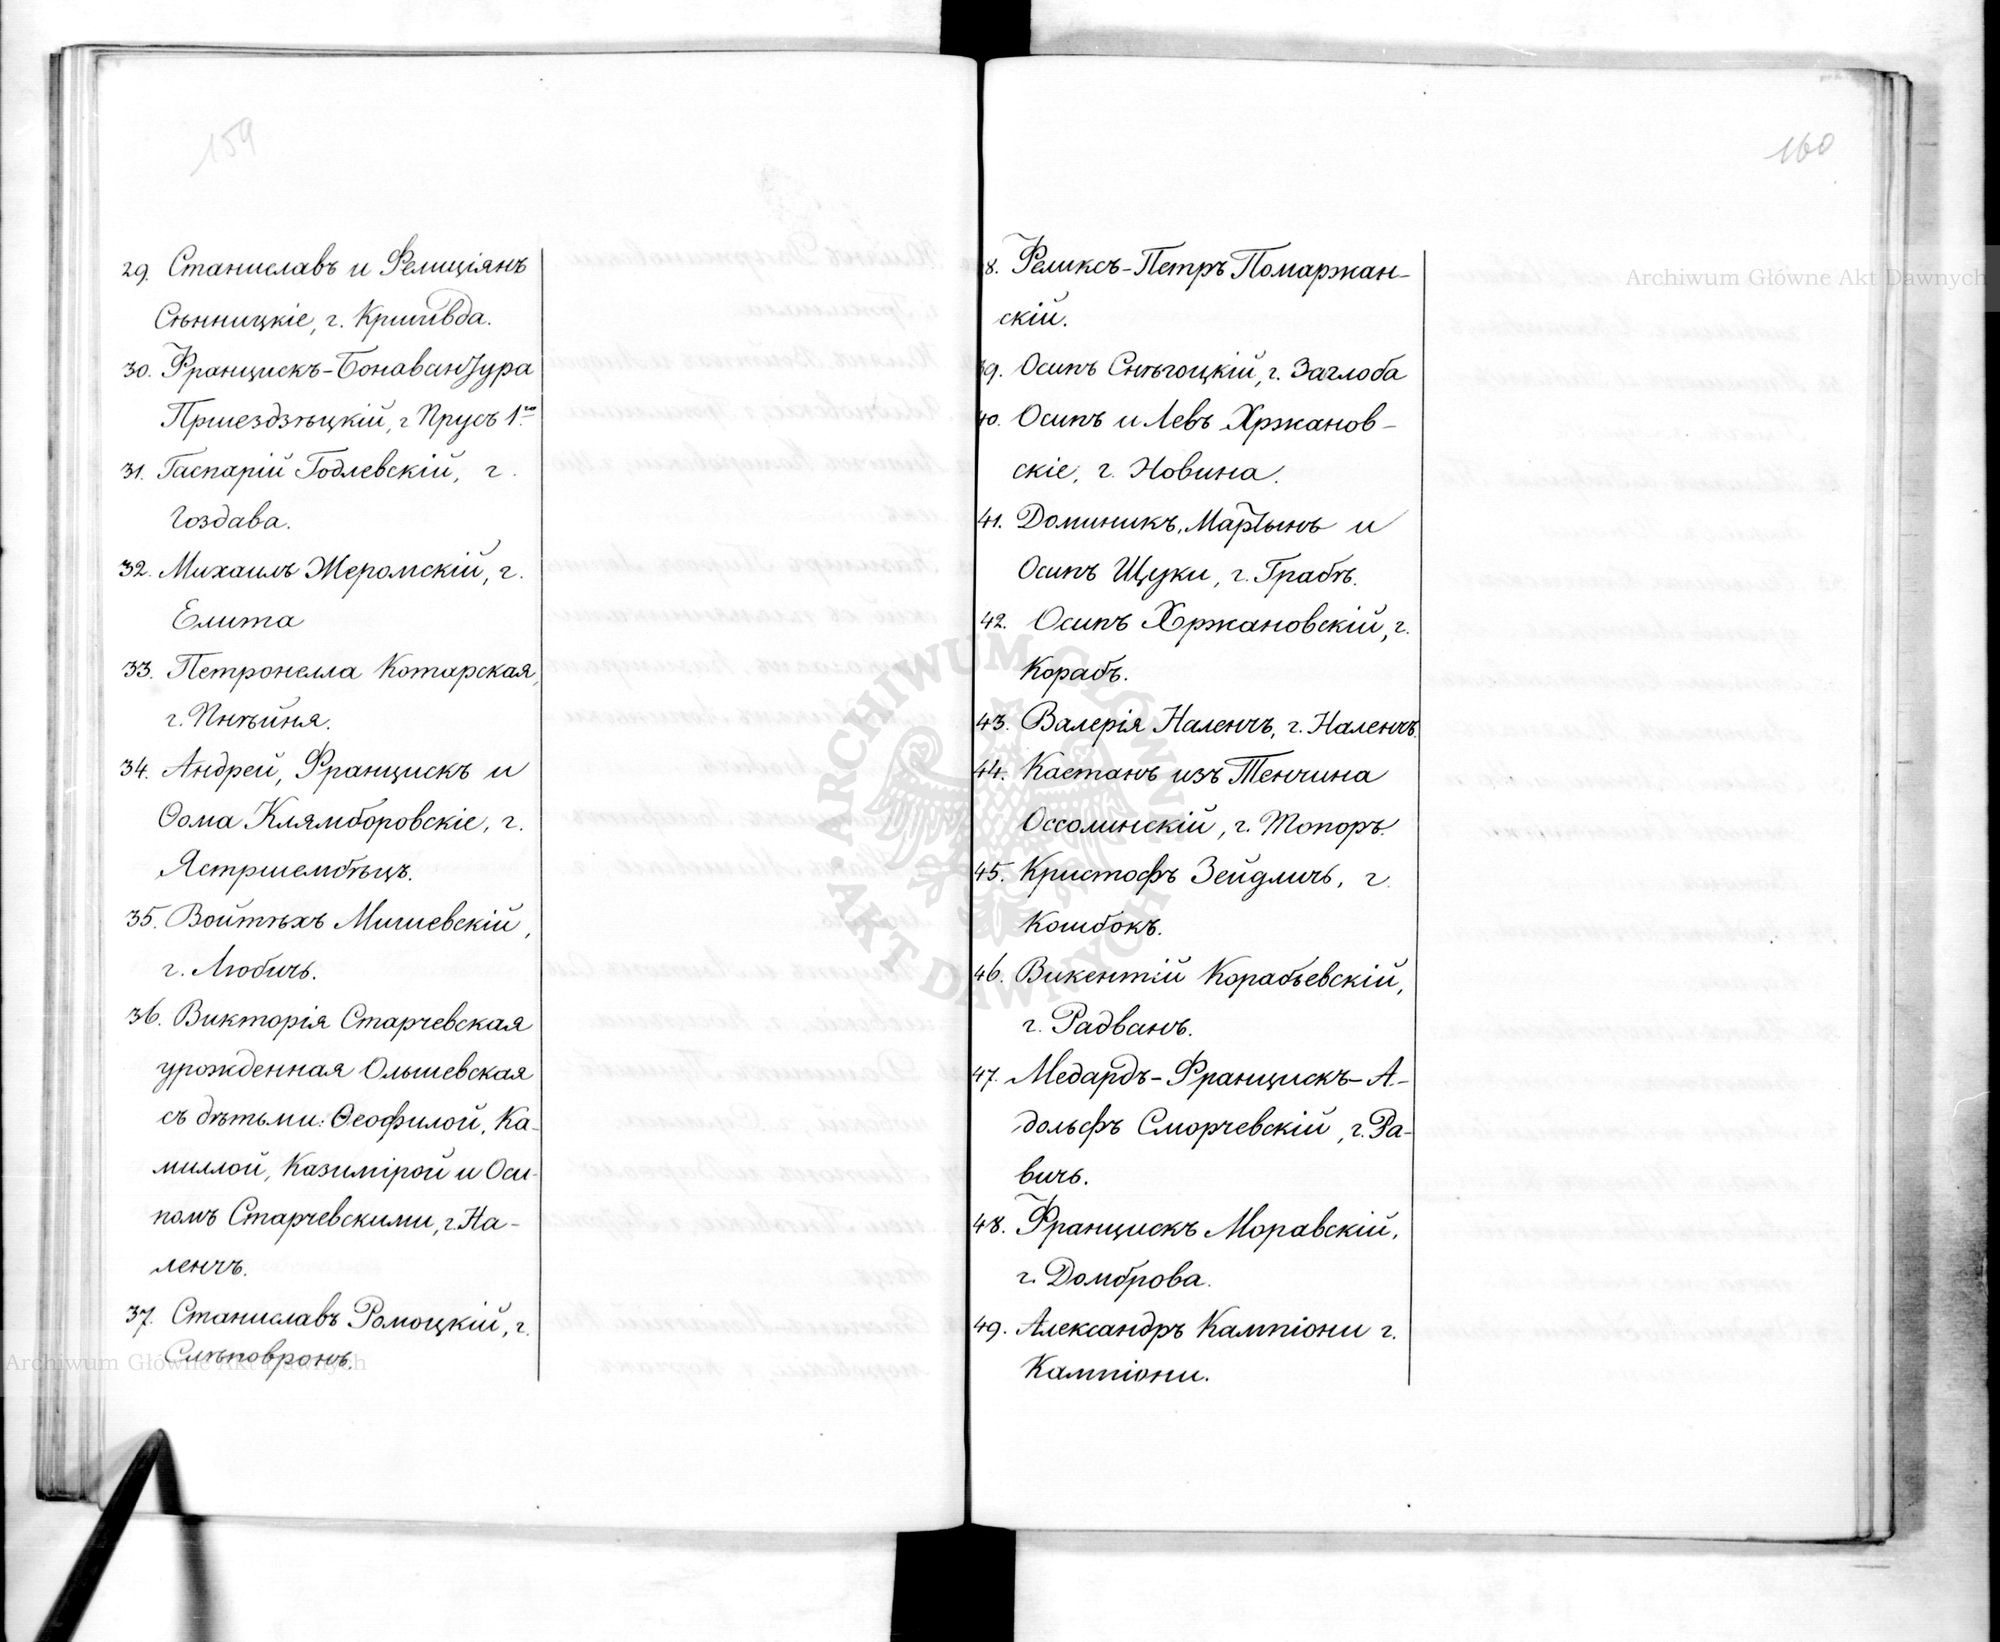 159
29. Станиславъ и Фелиціянъ
Сѣнницкіе, г. Кришвда.
30. Францискъ-Бонавантура
Пршездзѣцкій, г Прусъ 1го
31. Гаспарій Годлевскій, г.
Гоздава.
32. Михаилъ Жеромскій, г.
Елита
33. Петронелла Котарская,
г. Пнѣйня.
34. Андрей, Францискъ и
Ѳома Клямборовскіе, г.
Ястршембѣцъ.
35. Войтѣхъ Мишевскій,
г. Любичъ.
36. Викторія Старчевская
урожденная Ольшевская
съ дѣтьми: Ѳеофилой, Ка-
миллой, Казимірой и Оси-
помъ Старчевскими, г. На-
ленчъ.
37. Станиславъ Ромоцкій, г.
Слѣповронъ.
160
8. Феликсъ-Петръ Помаржан-
скій.
39. Осипъ Снѣгоцкій, г. Заглоба
40. Осипъ и Левъ Хржанов-
скіе, г. Новина.
41. Доминикъ, Мартынъ и
Осипъ Щуки, г. Грабѣ.
42. Осипъ Хржановскій, г.
Корабъ.
43. Валерія Наленчъ, г. Наленчъ.
44. Каетанъ изъ Тенчина
Оссолинскій, г. Топоръ.
45. Кристофъ Зейдличъ, г.
Кошбокъ.
46. Викентій Корабьевскій,
г. Радванъ.
47. Медардъ-Францискъ-А-
дольфъ Сморчевскій, г. Ра-
вичъ.
48. Францискъ Моравскій,
г. Домброва.
49. Александръ Кампіони г.
Кампіони.
Archiwum Główne Akt Dawnych
Archiwum Główne Akt Dawnych
ARCHIWUM GŁÓWNE AKT DAWNYCH